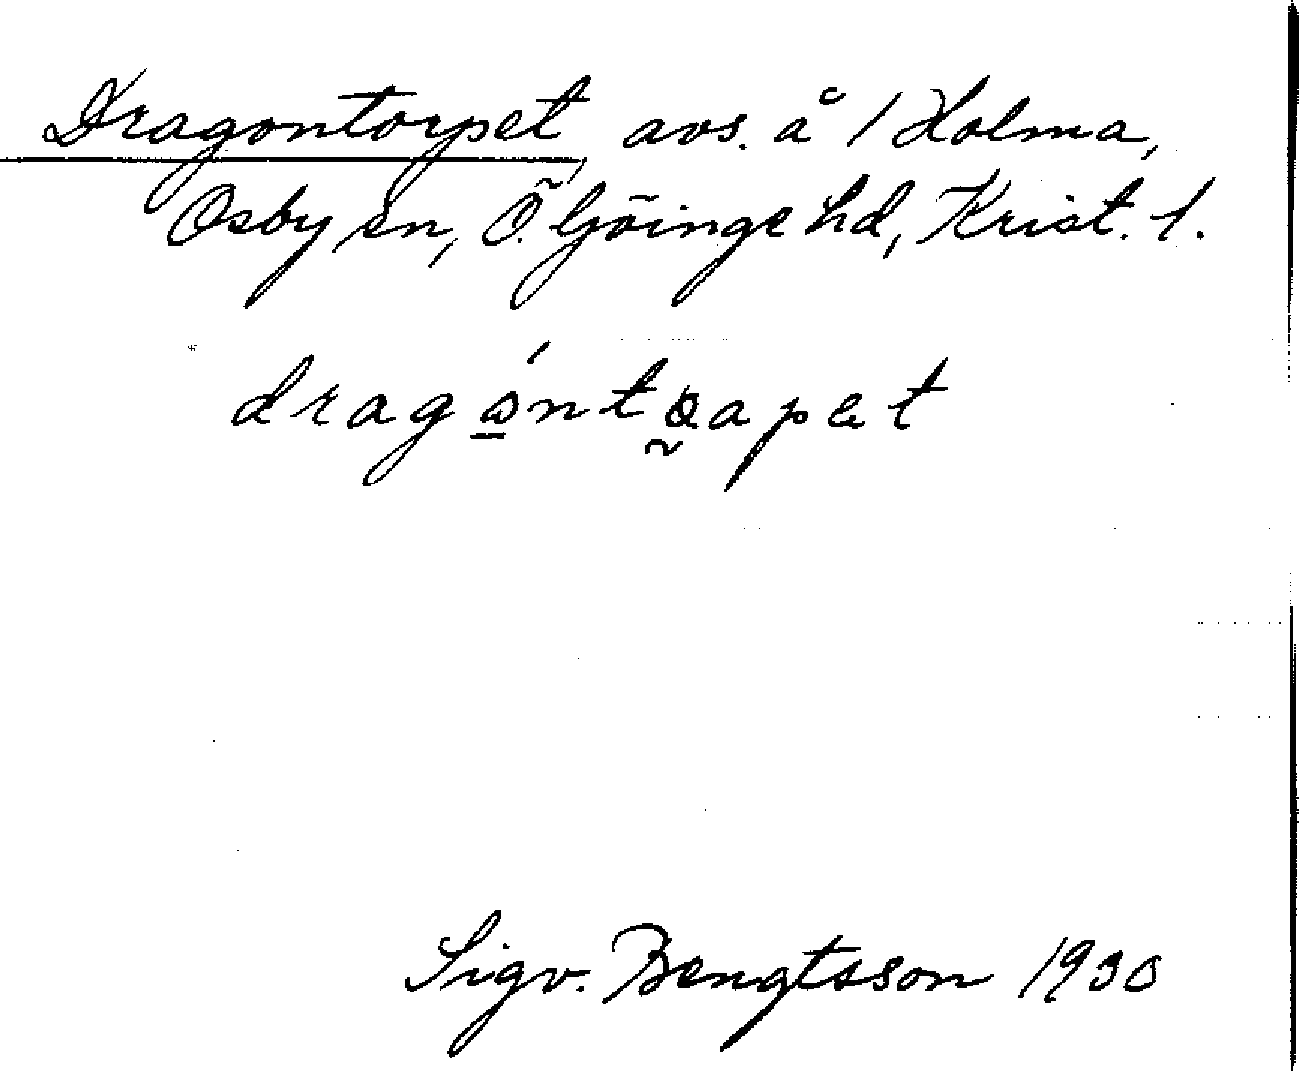 Dragontorpet avs. å 1 Holma,
Osby sn, Ö. Göinge hd, Krist. l.
Sigv. Bengtsson 1930